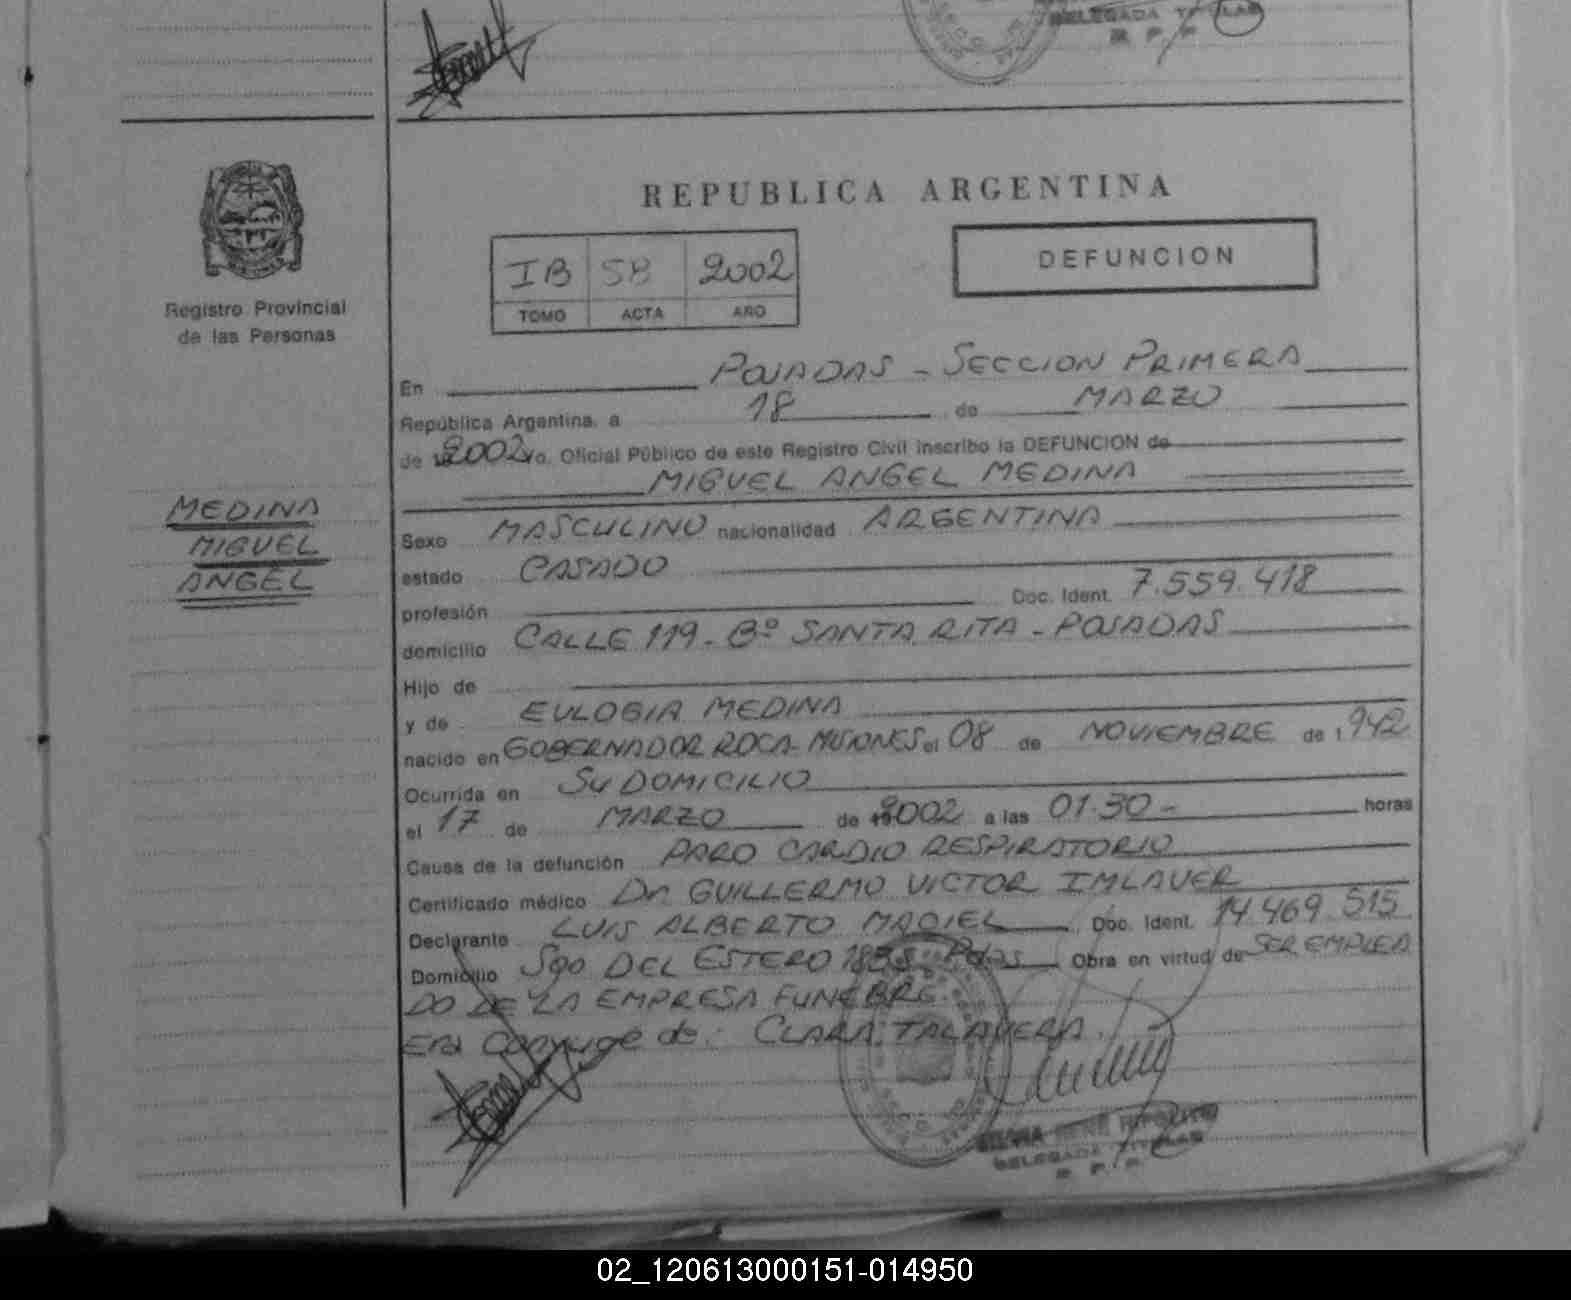 DELEGADA TITULAR
R P P
REPUBLICA ARGENTINA
IB 58 2002
TOMO ACTA AÑO
DEFUNCION
Registro Provincial
de las Personas
MEDINA
MIGUEL
ANGEL
En POSADAS - SECCION PRIMERA
República Argentina, a 18 de MARZO
de 2002 yo, Oficial Público de este Registro Civil inscribo la DEFUNCION de
MIGUEL ANGEL MEDINA
Sexo MASCULINO nacionalidad ARGENTINA
estado CASADO
profesión Doc. Ident. 7.559.418
domicilio CALLE 119 - Bº SANTA RITA - POSADAS
Hijo de
y de EULOGIA MEDINA
nacido en GOBERNADOR ROCA - MISIONES el 08 de NOVIEMBRE de 1.942
Ocurrida en SU DOMICILIO
el 17 de MARZO de 2002 a las 01.30 - horas
Causa de la defunción PARO CARDIO RESPIRATORIO
Certificado médico Dr. GUILLERMO VICTOR IMLAUER
Declarante LUIS ALBERTO MACIEL Doc. Ident. 14.469.515
Domicilio Sgo DEL ESTERO Pdas Obra en virtud de SER EMPLEA
DO DE LA EMPRESA FUNEBRE.
Era Conyuge de: CLARA TALAVERA.
DELEGADA TITULAR
R. P. P.
02_120613000151-014950